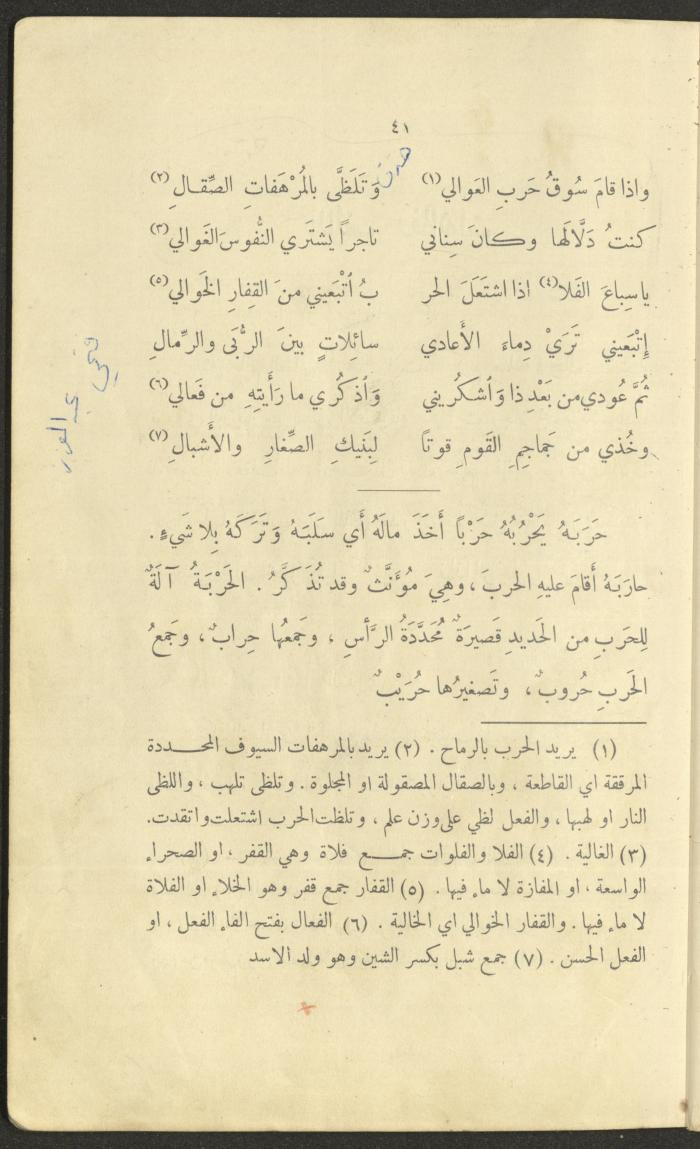 ٤١
واذا قامَ سُوقُ حَربِ العَوالي(١) وَتَلَظَّى بالمُرْهَفاتِ الصِّقـالِ(٢)
كنتُ دَلَّالَها وكانَ سِناني تاجراً يَشتَري النُّفوسَ الغَوالي(٣)
ياسِباعَ الفَلا(٤) اذا اشتَعَلَ الحر بُ ٱتْبَعيني منَ القِفارِ الخَوالي(٥)
إِتْبَعيني تَرَيْ دِماءَ الأَعادي سائِلاتٍ بينَ الرُّبَى والرِّمالِ
ثُمَّ عُودي من بَعْدِ ذا وَٱشكُريني وَٱذكُري ما رَأَيتِهِ من فَعالي(٦)
وخُذي من جَماجِمِ القَومِ قوتاً لِبَنيكِ الصِّغارِ والأَشبالِ(٧)
حَرَبَهُ يَحْرُبُهُ حَرْباً أَخَذَ مالَهُ أَي سَلَبَهُ وَتَرَكَهُ بِلا شَيءٍ.
حارَبَهُ أَقامَ عليهِ الحربَ، وهِيَ مُؤَنَّثٌ وقد تُذَكَّرُ. الحَرْبَةُ آلَةٌ
لِلحَربِ من الحَديدِ قَصيرَةٌ مُحَدَّدَةُ الرَّأسِ، وجَمعُها حِرابٌ، وجَمعُ
الحَربِ حُروبٌ، وتَصغيرُها حُرَيْبٌ
(١) يريد الحرب بالرماح. (٢) يريد بالمرهفات السيوف المحـددة
المرققة اي القاطعة، وبالصقال المصقولة او المجلوة. وتلظى تلهب، واللظى
النار او لهبها، والفعل لظي على وزن علم، وتلظت الحرب اشتعلت واتقدت.
(٣) الغالية. (٤) الفلا والفلوات جمـع فلاة وهي القفر، او الصحراء
الواسعة، او المفازة لا ماء فيها. (٥) القفار جمع قفر وهو الخلاء او الفلاة
لا ماء فيها. والقفار الخوالي اي الخالية. (٦) الفعال بفتح الفاء الفعل، او
الفعل الحسن. (٧) جمع شبل بكسر الشين وهو ولد الاسد